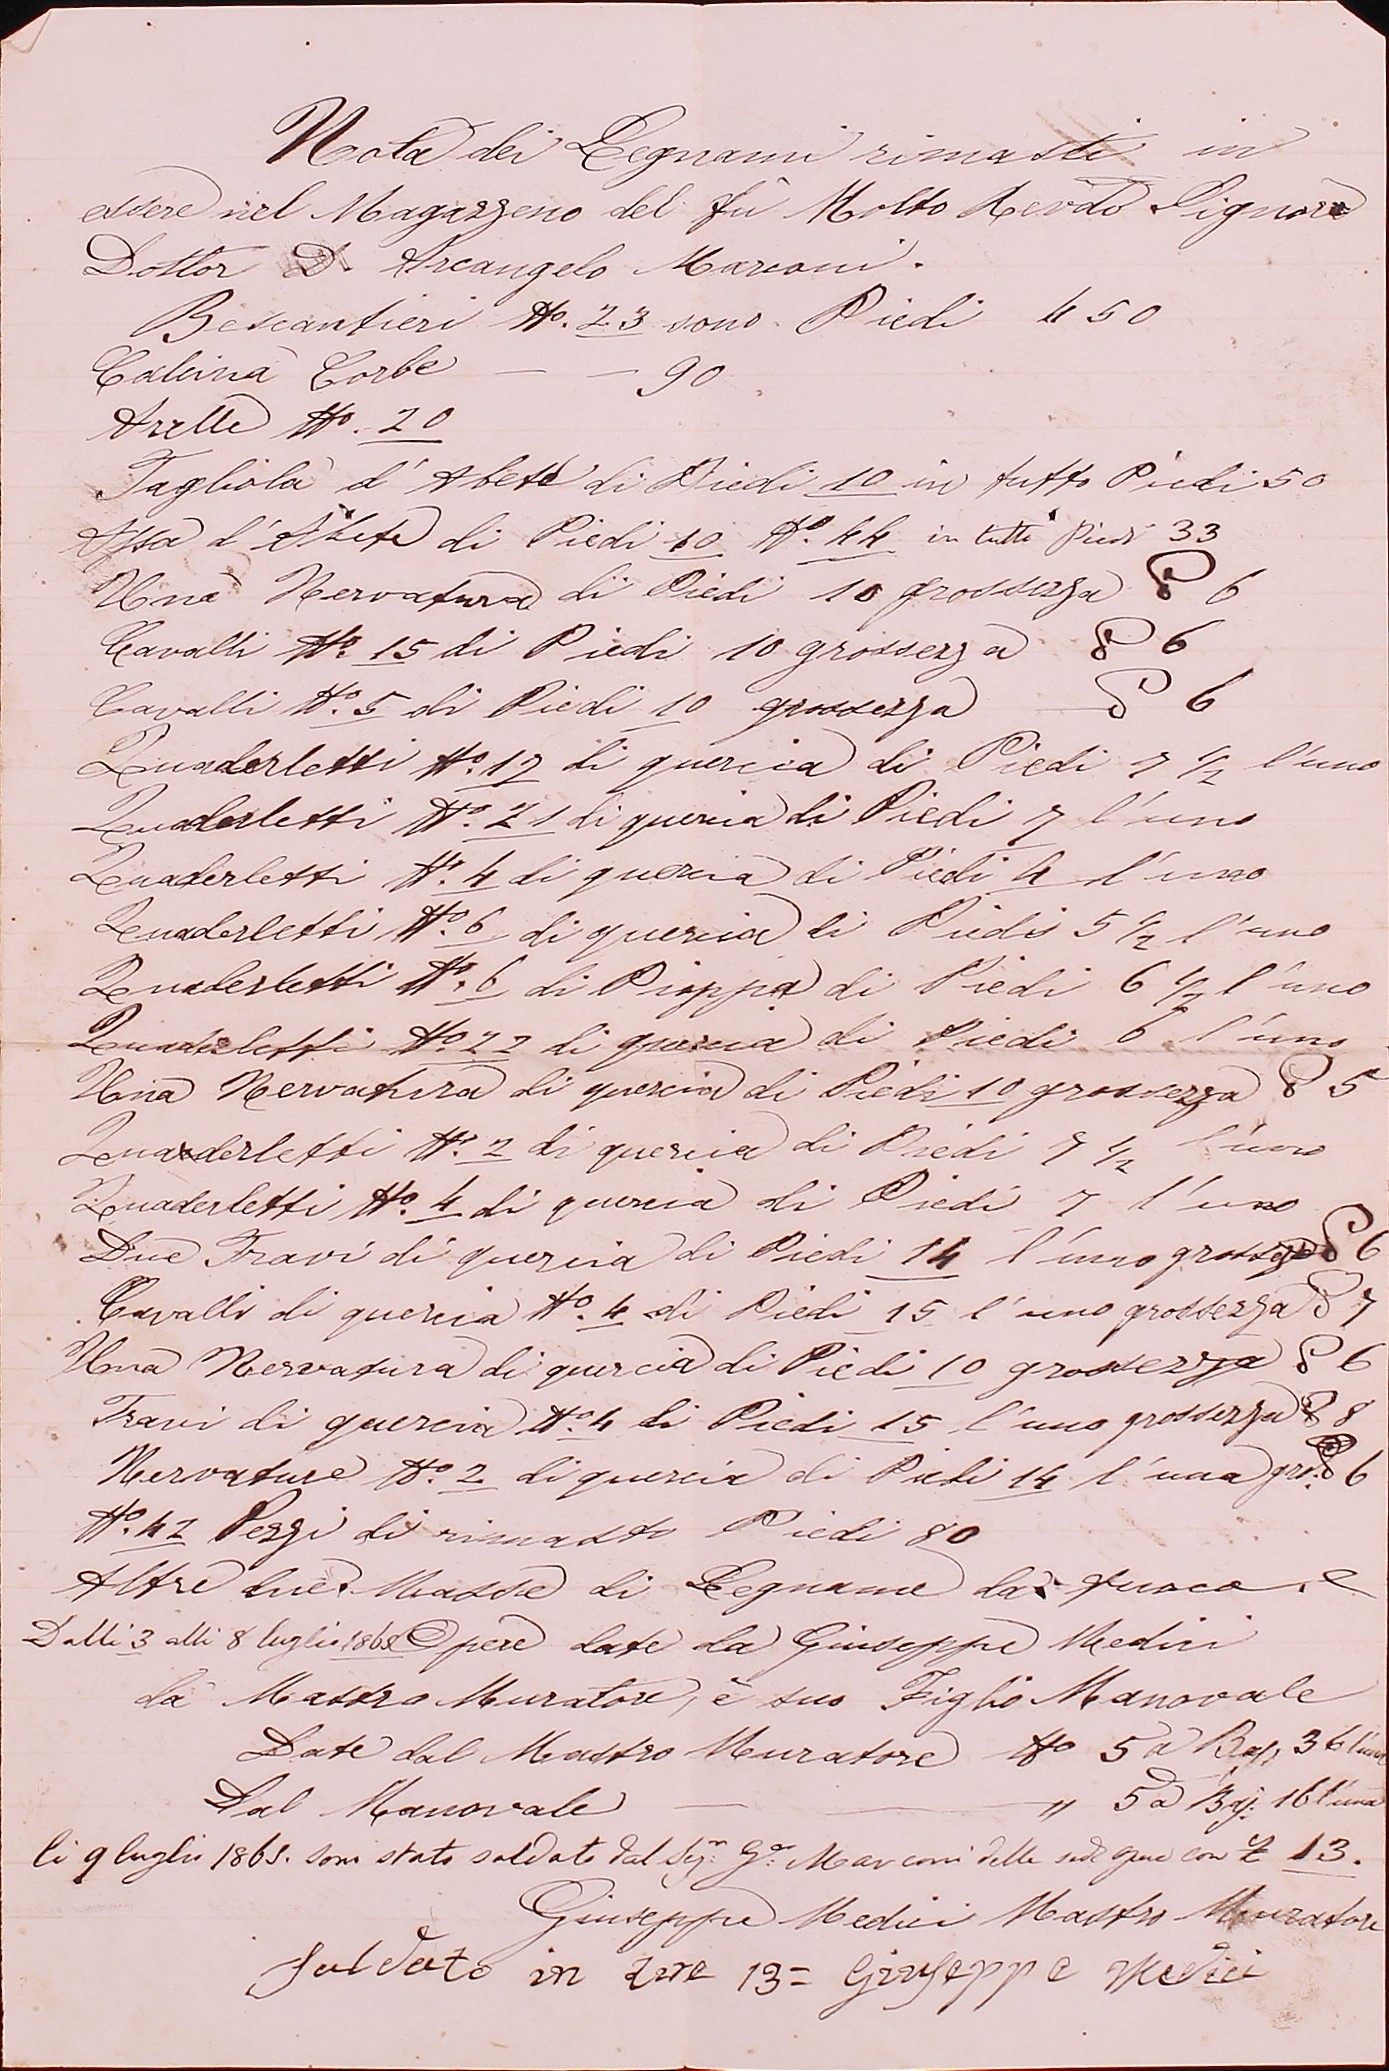 Nota dei Legnami rimasti in
essere nel Magazzeno del fù Molto Revdo Signore
Dottor D. Arcangelo Marconi.
Bescantieri No. 23 sono Piedi 450
Calcina Corbe — — 90
Arelle No. 20
Tagliola d'Abete di Piedi 10 in tutto Piedi 50
Assa d'Abete di Piedi 10 No. 44 in tutti Piedi 33
Una Nervatura di Piedi 10 grossezza 6
Cavalli No. 15 di Piedi 10 grossezza 6
Cavalli No. 5 di Piedi 10 grossezza 6
Quaderletti No. 12 di quercia di Piedi 7 1/2 l'uno
Quaderletti No. 21 di quercia di Piedi 7 l'uno
Quaderletti No. 4 di quercia di Piedi 4 l'uno
Quaderletti No. 6 di quercia di Piedi 5 1/2 l'uno
Quaderletti No. 6 di Pioppa di Piedi 6 1/2 l'uno
Quaderletti No. 22 di quercia di Piedi 6 l'uno
Una Nervatura di quercia di Piedi 10 grossezza 5
Quaderletti No. 2 di quercia di Piedi 7 1/2 l'uno
Quaderletti No. 4 di quercia di Piedi 7 l'uno
Due Travi di quercia di Piedi 14 l'uno grossezza 6
Cavalli di quercia No. 4 di Piedi 15 l'uno grossezza 7
Una Nervatura di quercia di Piedi 10 grossezza 6
Travi di quercia No. 4 di Piedi 15 l'uno grossezza 8
Nervature No. 2 di quercia di Piedi 14 l'una gros. 6
No. 42 Pezzi di rimasto Piedi 80
Altre due Masse di Legname da fuoco. e
Dalli 3 alli 8 luglio 1868 Opere date da Giuseppe Medici
da Mastro Muratore, è suo Figlio Manovale
Date dal Mastro Muratore No 5 a Baj. 36 l'una
Dal Manovale — — " 5 a Baj. 16 l'una
li 9 luglio 1868. sono stato saldato dal Sigr. Gre. Marconi delle sude opere con £ 13.
Giuseppe Medici Mastro Muratore
Saldato in Lire 13 = Giuseppe Medici